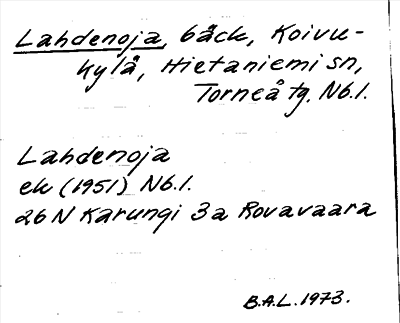 Lahdenoja, bäck, Koivu-
kylä, Hietaniemi sn,
Torneå tg. Nb.l.
Lahdenoja
ek (1951) Nb.l.
26 N Karungi 3a Rovavaara
B.A.L. 1973.